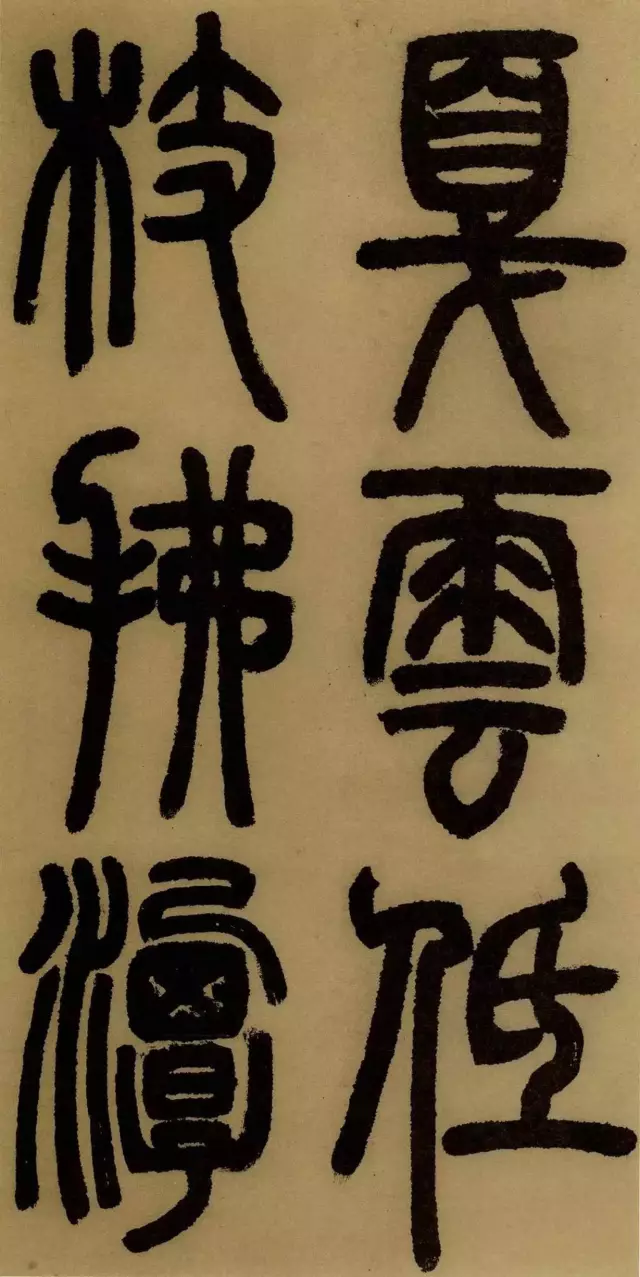 夏雲低
枝拂潭